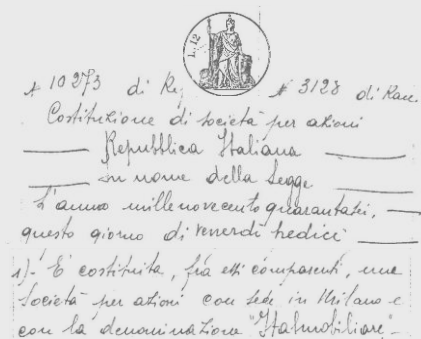 L. 12
N 10273 di Rep. N 3128 di Racc.
Costituzione di società per azioni
Repubblica Italiana
In nome della Legge
L'anno millenovecentoquarantasei,
questo giorno di venerdì tredici
1)- È costituita, fra essi comparenti, una
Società per azioni con sede in Milano e
con la denominazione "Italmobiliare"-